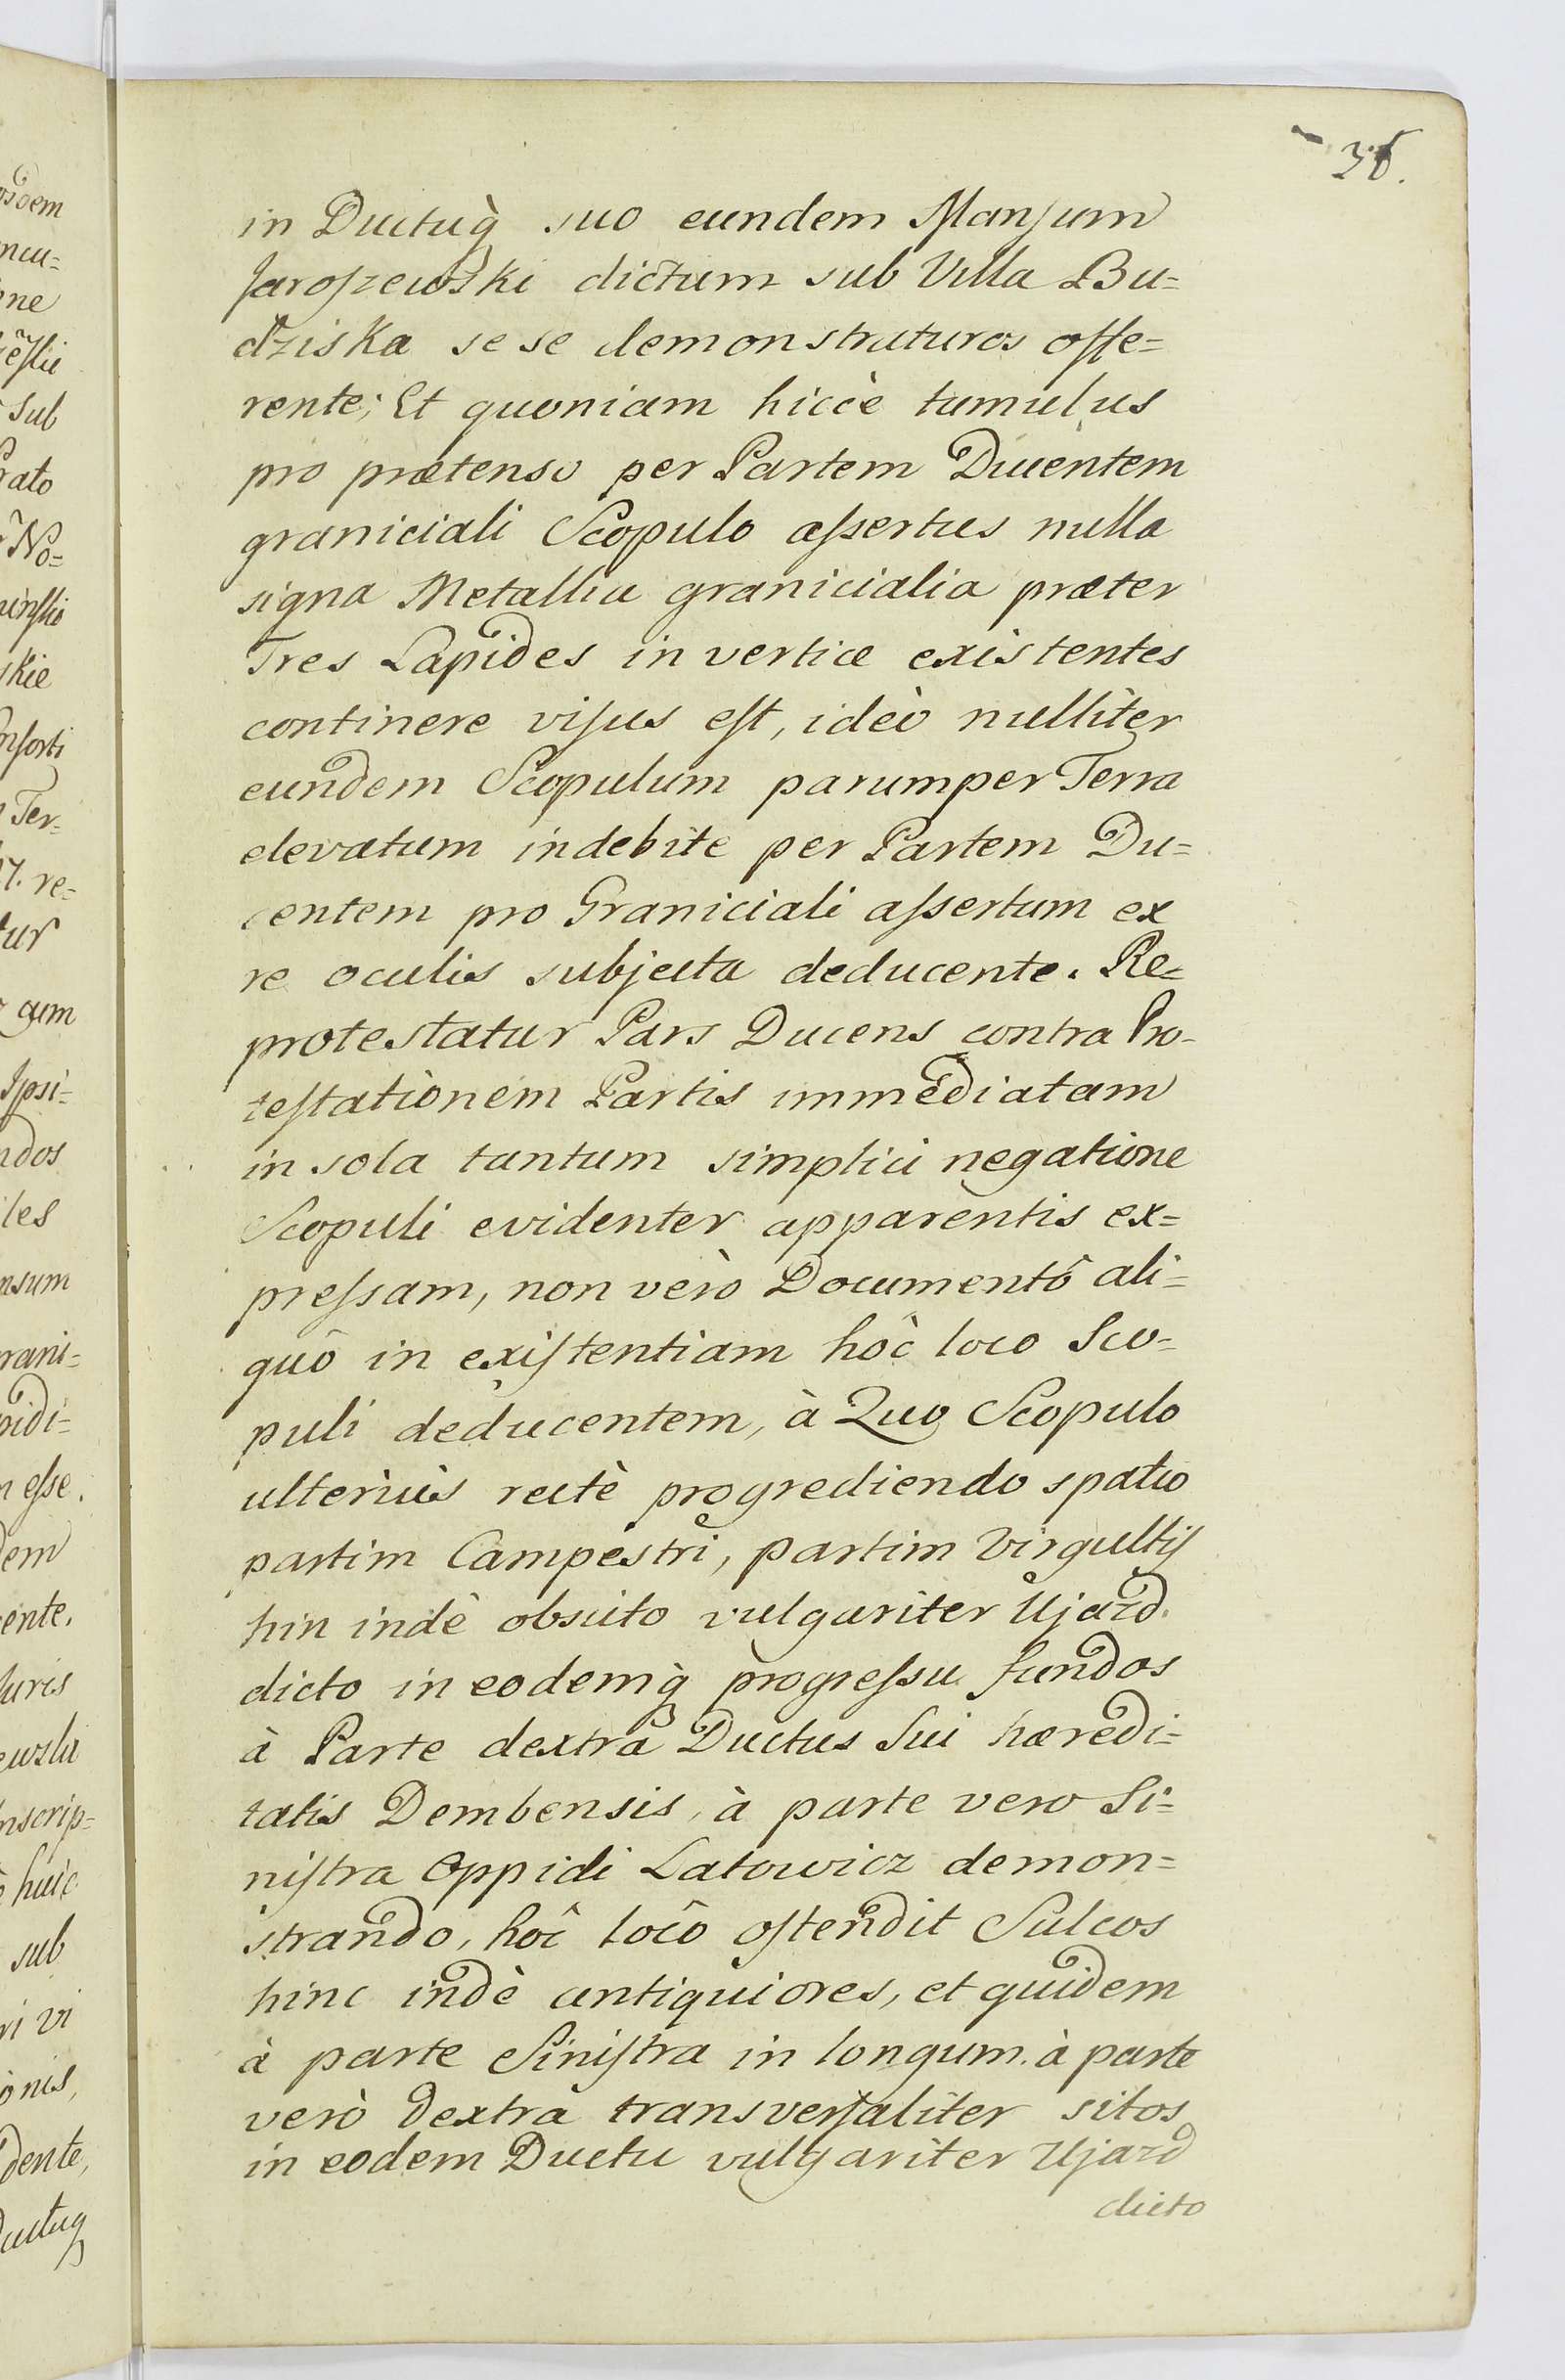 36.
in Ductuq̀ suo eundem Manſum
Jaroſzewski dictum sub Villa Bu=
dziska se se demonstraturos offe=
rente; Et quoniam hiccè tumulus
pro prætenso per Partem Ducentem
graniciali Scopulo aſsertus nulla
signa Metallica granicialia præter
Tres Lapides in vertice existentes
continere viſus eſt, ideò nullitèr
eundem Scopulum parumper Terra
elevatum indebitè per Partem Du=
centem pro Graniciali aſsertum ex
re oculis subjecta deducente. Re=
protestatur Pars Ducens contra Pro-
teſtationem Partis immediatam
in sola tantum simplici negatione
Scopuli evidenter apparentis ex=
preſsam, non verò Documentô ali=
quô in exiſtentiam hôc loco Sco=
puli deducentem, à Quo Scopulo
ulteriùs rectè progrediendo spatio
partim Campestri, partim Virgultij
hin indè obsito vulgariter Ujazd
dicto in eodemq̀ progreſsu fundos
à Parte dextrâ Ductus Sui hæredi=
tatis Dembensis, à parte vero Si=
niſtra Oppidi Latowicz demon=
strando, hôc locô oſtendit Sulcos
hinc indè antiquiores, et quidem
à parte Siniſtra in longum à parte
verò dextrâ transverſaliter sitos
in eodem Ductu vulgariter Ujazd
dicto
osdem
ncu=
ne
sub
rato
No=
skie
nſorti
Ter=
re=
tur
gum
Ipsi=
ndos
iles
nsum
rani=
pidi=
eſse.
dem
cente.
Juris
nscrip=
huic
sub
ri vi
onis,
dente,
Ductuq